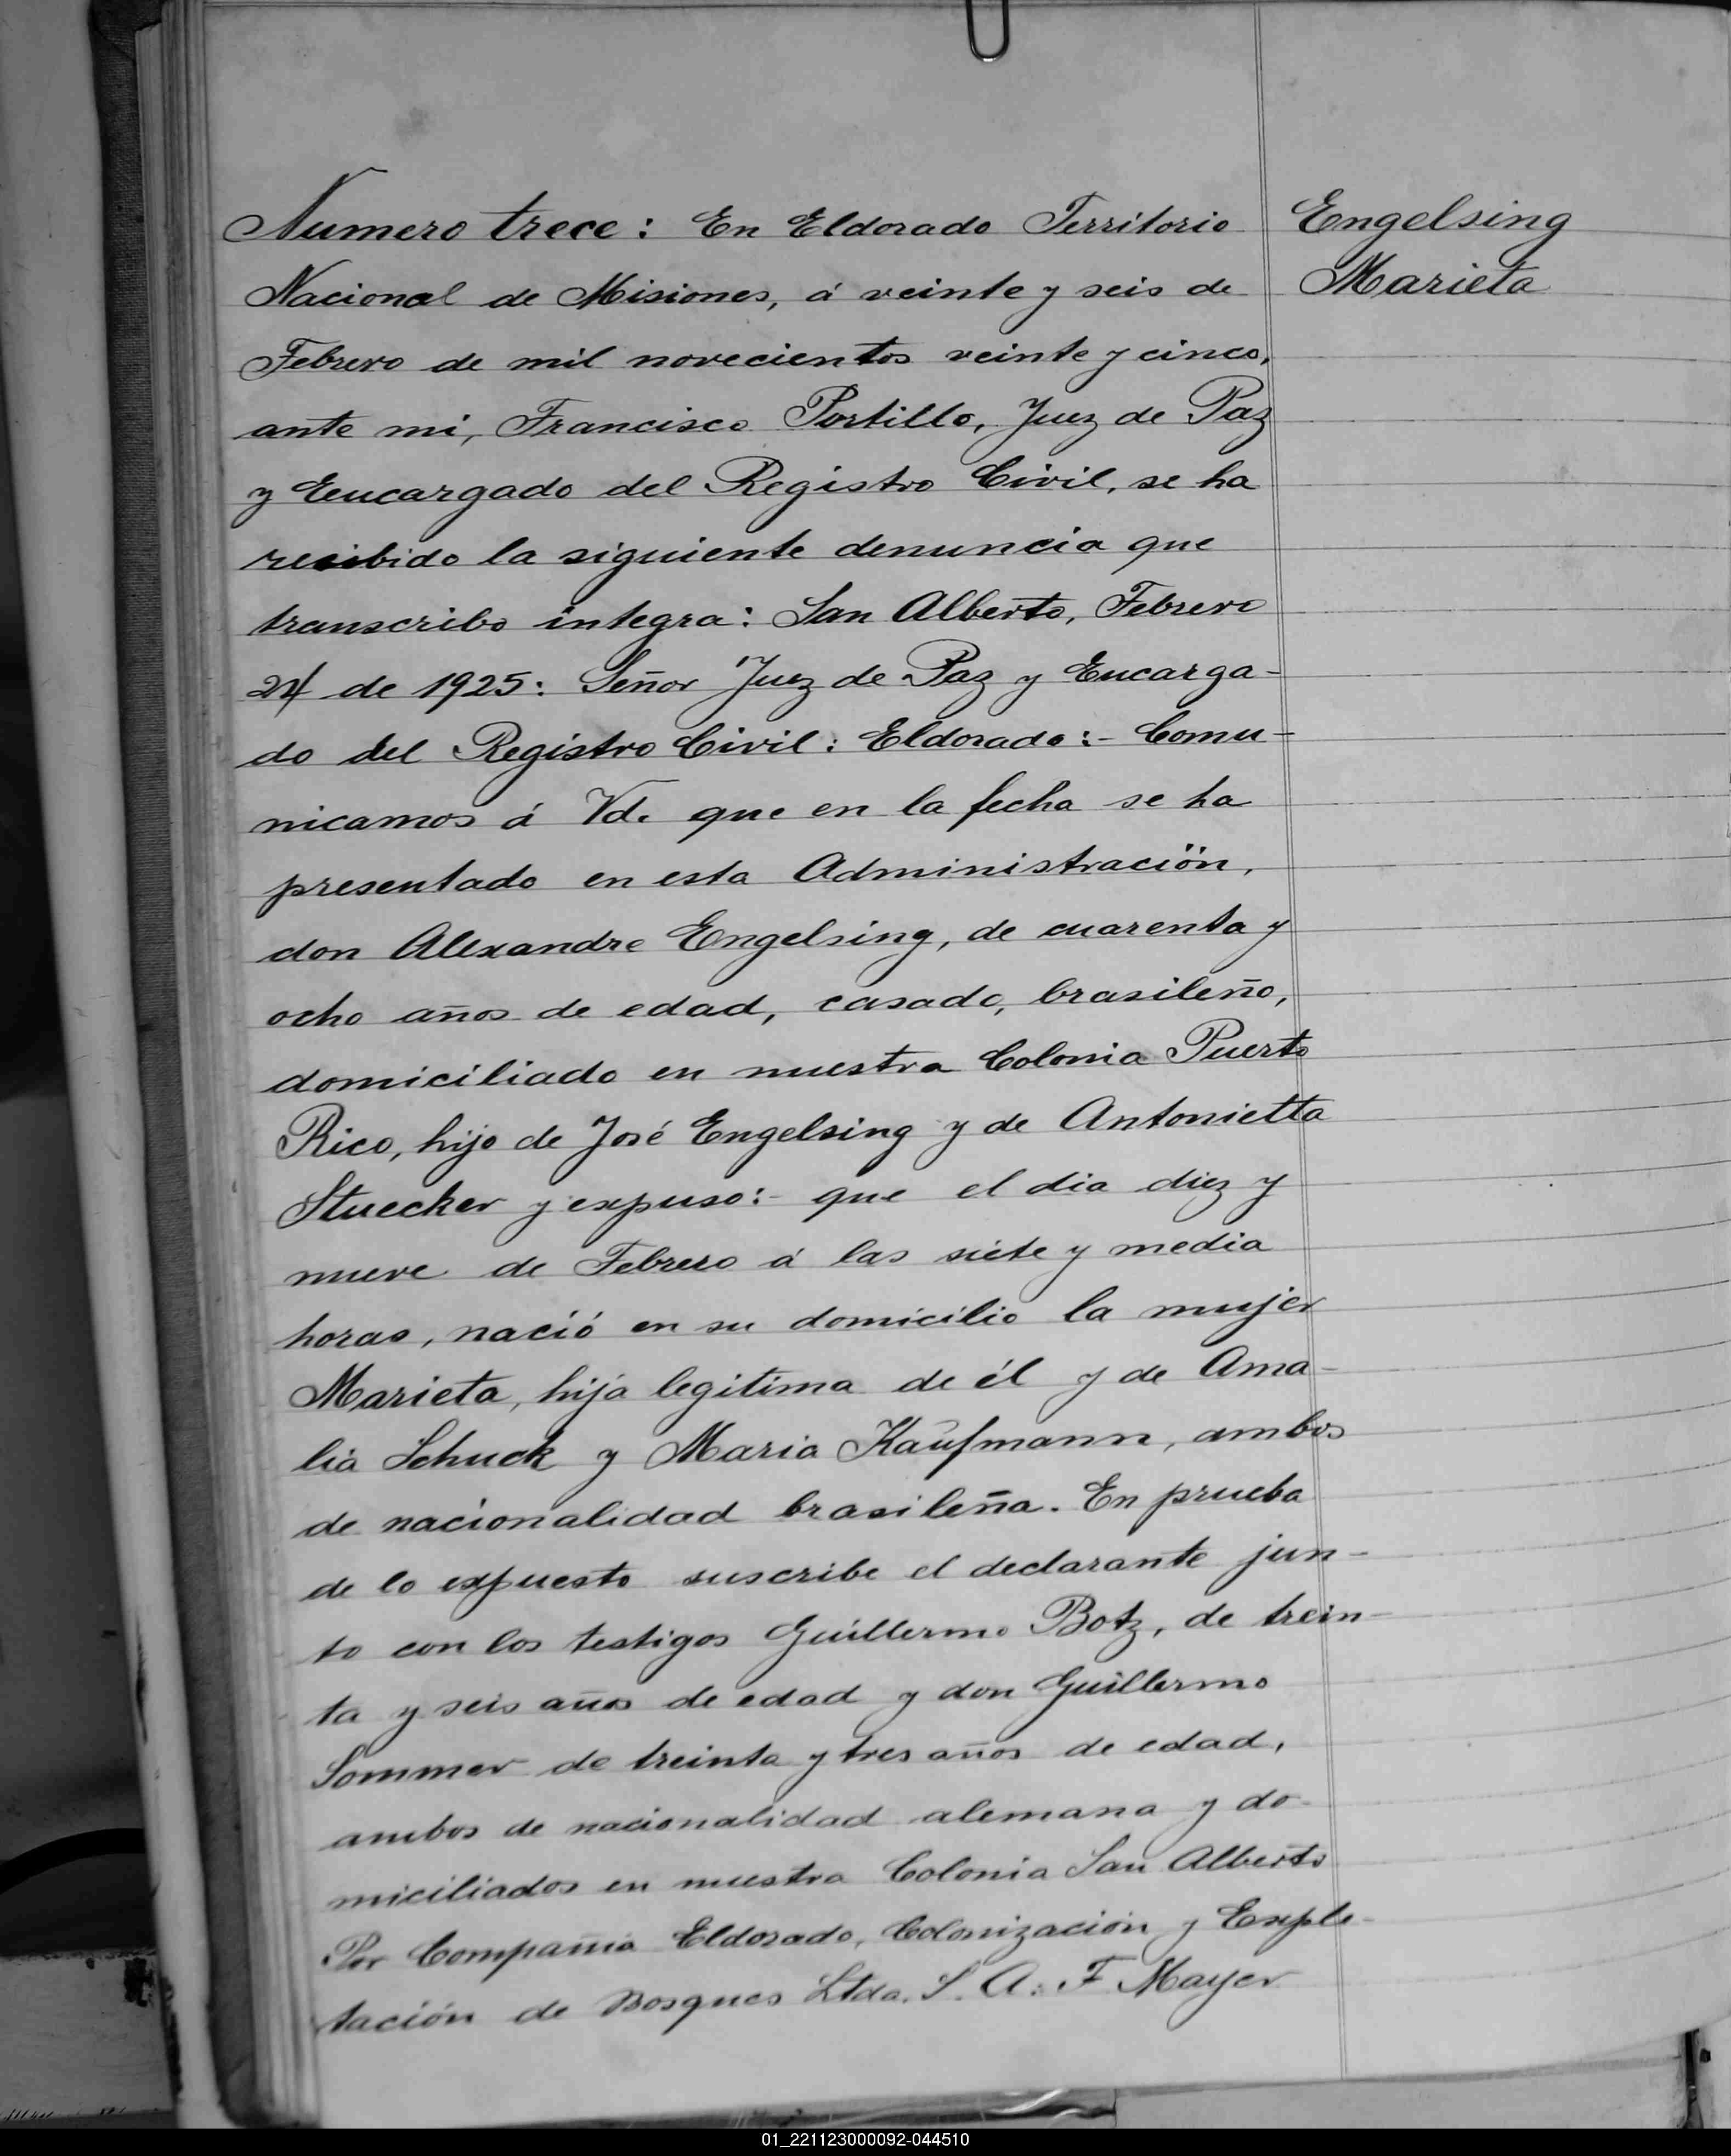 Numero trece: En Eldorado Territorio
Engelsing
Nacional de Misiones, á veinte y seis de
Marieta
Febrero de mil novecientos veinte y cinco,
ante mi, Francisco Portillo, Juez de Paz
y Eencargado del Registro Civil, se ha
recibido la siguiente denuncia que
transcribo integra: San Alberto, Febrero
24 de 1925: Señor Juez de Paz y Encarga-
do del Registro Civil: Eldorado:- Comu-
nicamos á Vd. que en la fecha se ha
presentado en esta Administración,
don Alexandre Engelsing, de cuarenta y
ocho años de edad, casado, brasileño,
domiciliado en nuestra Colonia Puerto
Rico, hijo de José Engelsing y de Antonietta
Stuecker y expuso:- que el dia diez y
nueve de Febrero á las siete y media
horas, nació en su domicilio la mujer
Marieta, hija legitima de él y de Ama-
lia Schuck y Maria Kaufmann, ambos
de nacionalidad brasileña. En prueba
de lo expuesto suscribe el declarante jun-
to con los testigos Guillermo Botz, de trein-
ta y seis años de edad y don Guillermo
Sommer de treinta y tres años de edad,
ambos de nacionalidad alemana y do-
miciliados en nuestra Colonia San Alberto
Por Compañia Eldorado, Colonización y Explo-
tación de Bosques Ltda. S. A: F Mayer
01_221123000092-044510